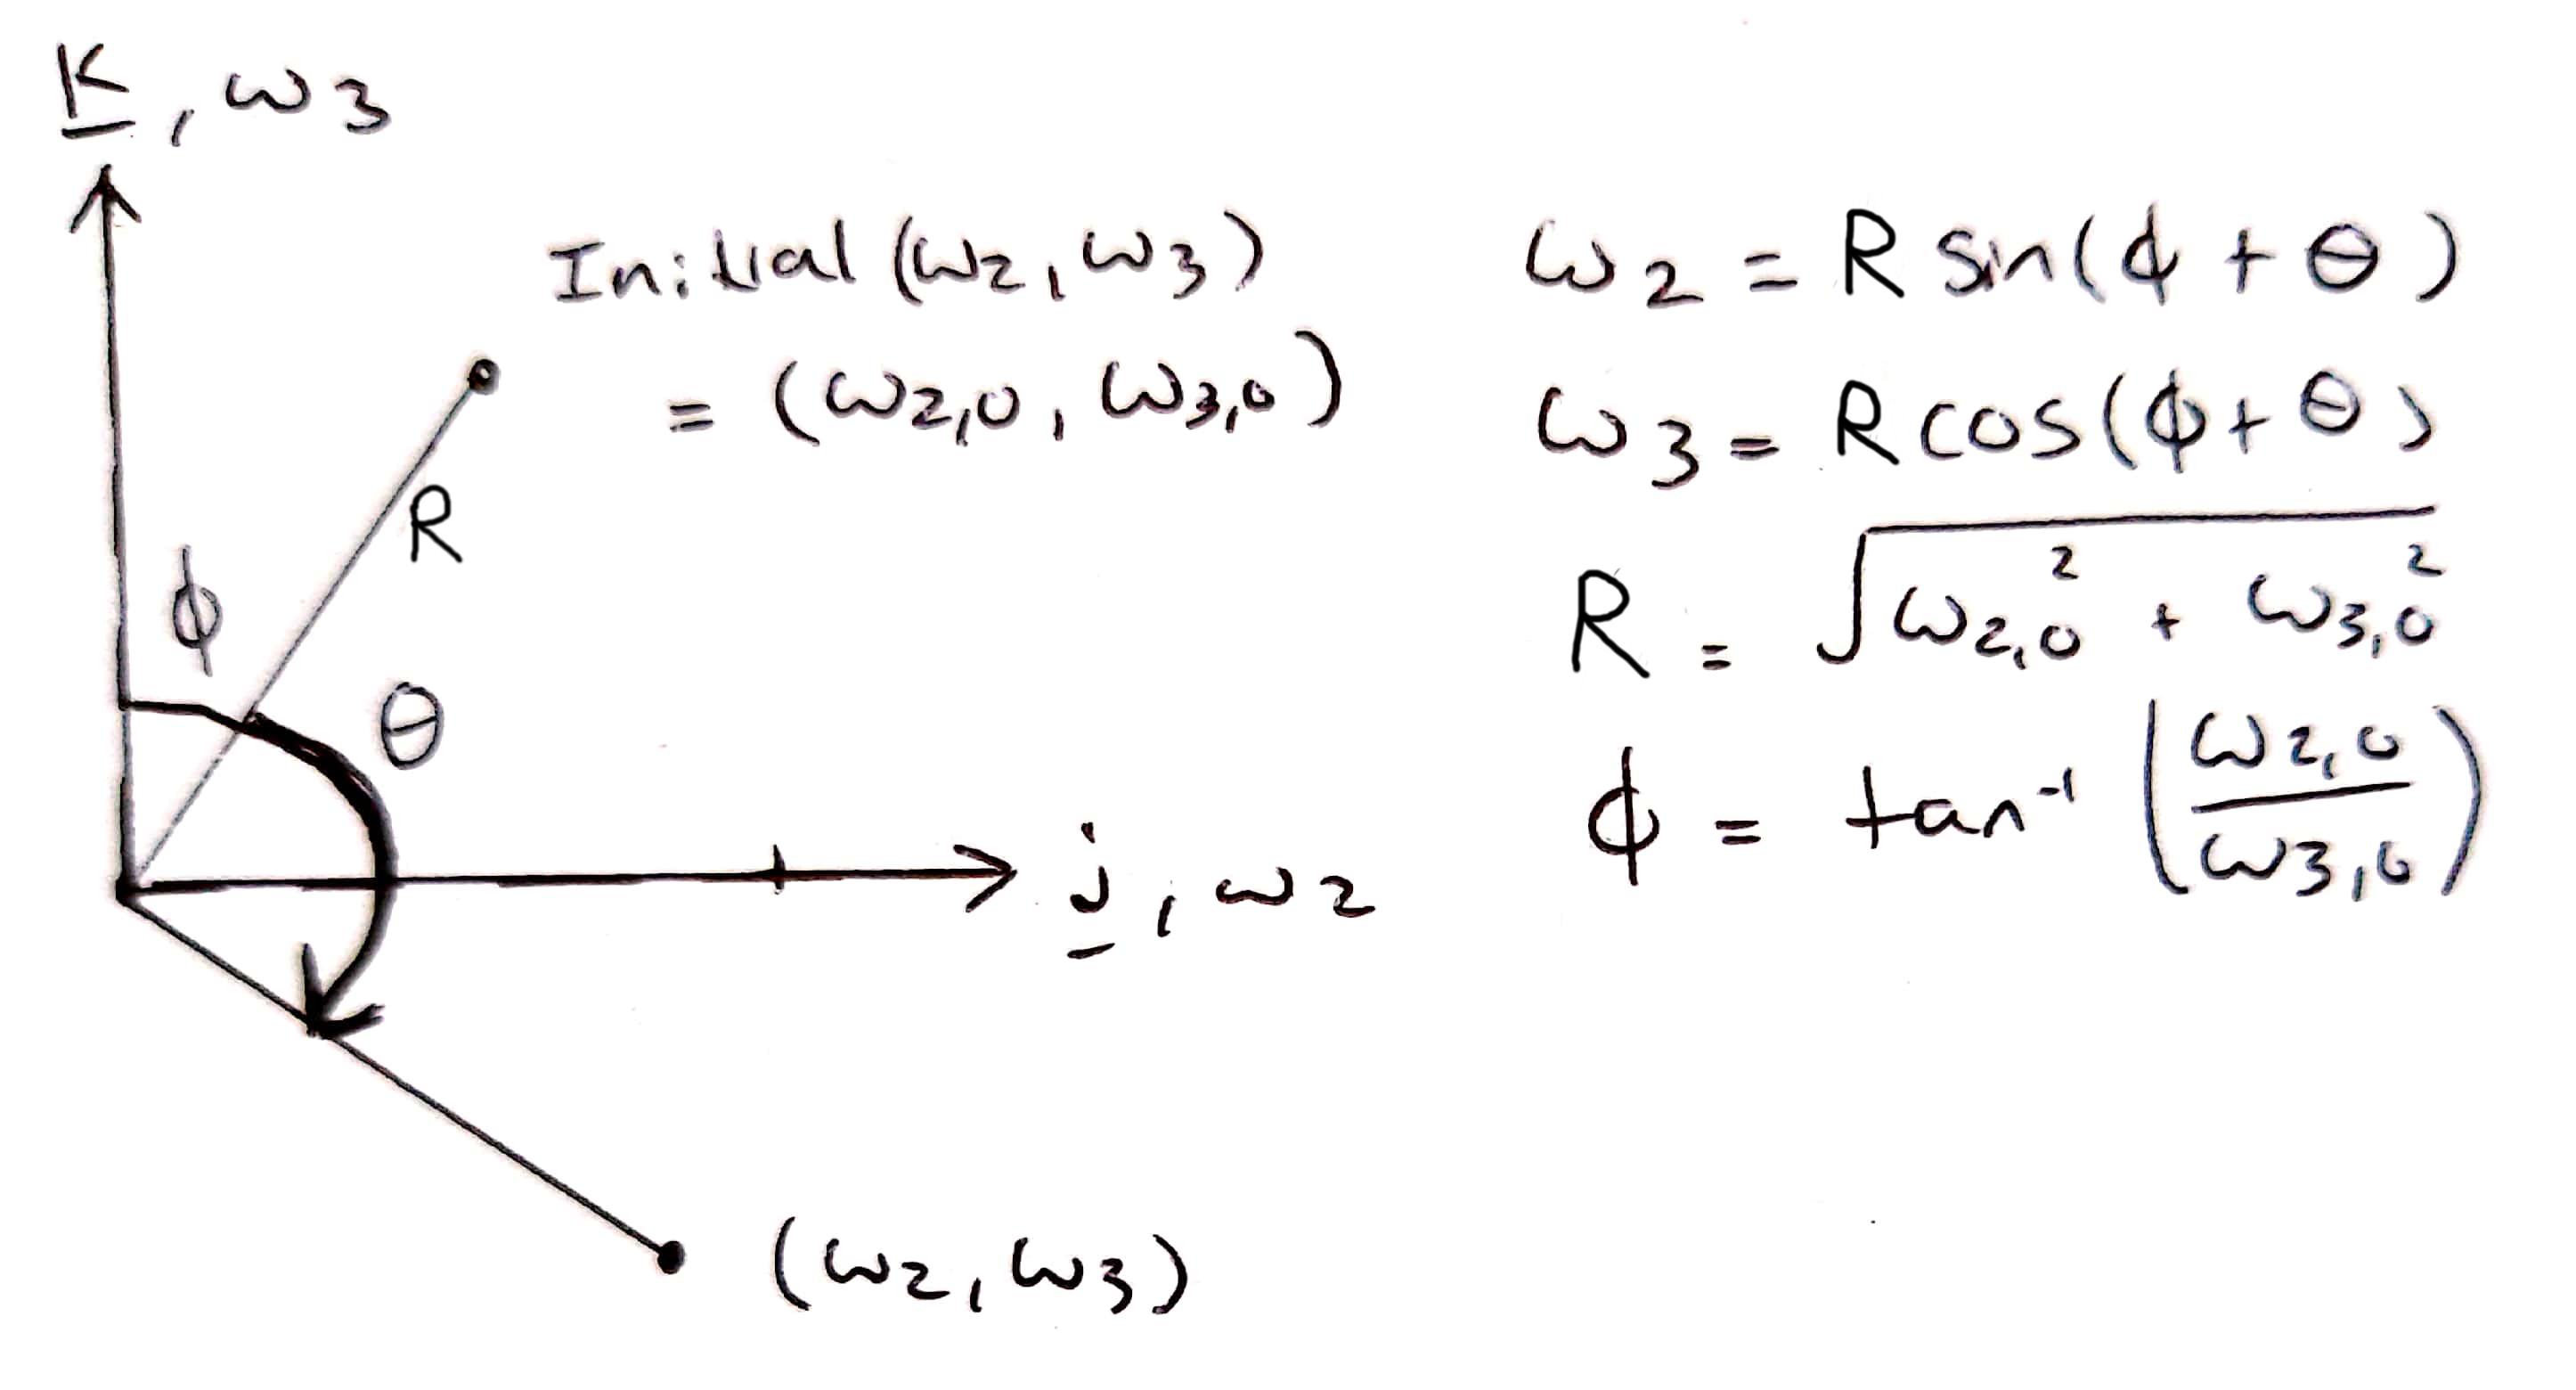 K, ω3
Initial (ω2, ω3)
= (ω2,0, ω3,0)
R
ϕ
θ
j, ω2
(ω2, ω3)
ω2 = R sin(ϕ + θ)
ω3 = R cos(ϕ + θ)
R = √(ω2,0² + ω3,0²)
ϕ = tan⁻¹ (ω2,0 / ω3,0)